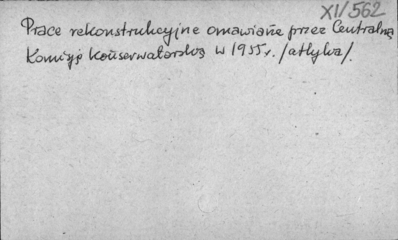 XI/562
Prace rekonstrukcyjne omawiane przez Centralną
Komisję Konserwatorską w 1955 r. /atlylva/.